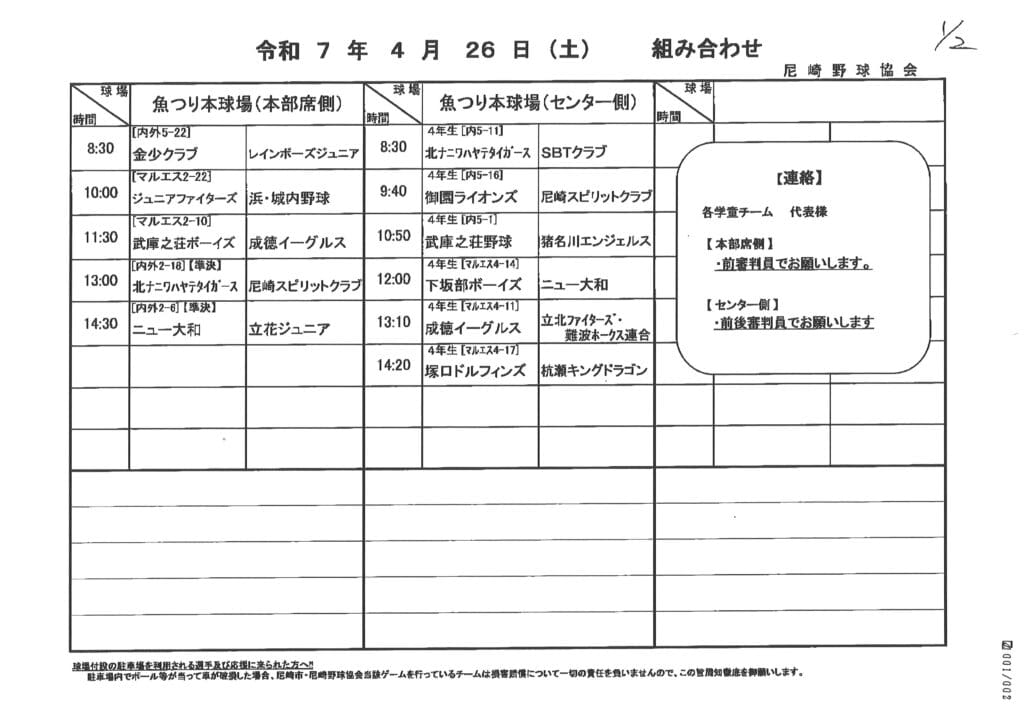 1/2
令和 7 年 4 月 26 日 (土) 組み合わせ
尼崎野球協会
球場
時間
魚つり本球場(本部席側)
球場
時間
魚つり本球場(センター側)
球場
時間
8:30
[内外5-22]
金少クラブ
レインボーズジュニア
10:00
[マルエス2-22]
ジュニアファイターズ
浜・城内野球
11:30
[マルエス2-10]
武庫之荘ボーイズ
成徳イーグルス
13:00
[内外2-18]【準決】
北ナニワハヤテタイガース
尼崎スピリットクラブ
14:30
[内外2-6]【準決】
ニュー大和
立花ジュニア
8:30
4年生 [内5-11]
北ナニワハヤテタイガース
SBTクラブ
9:40
4年生 [内5-16]
御園ライオンズ
尼崎スピリットクラブ
10:50
4年生 [内5-1]
武庫之荘野球
猪名川エンジェルス
12:00
4年生 [マルエス4-14]
下坂部ボーイズ
ニュー大和
13:10
4年生 [マルエス4-11]
成徳イーグルス
立北ファイターズ・
難波ホークス連合
14:20
4年生 [マルエス4-17]
塚口ドルフィンズ
杭瀬キングドラゴン
【連絡】
各学童チーム 代表様
【本部席側】
・前審判員でお願いします。
【センター側】
・前後審判員でお願いします
球場付設の駐車場を利用される選手及び応援に来られた方へ!!
駐車場内でボール等が当って車が破損した場合、尼崎市・尼崎野球協会当該ゲームを行っているチームは損害賠償について一切の責任を負いませんので、この旨周知徹底を御願いします。
001/002